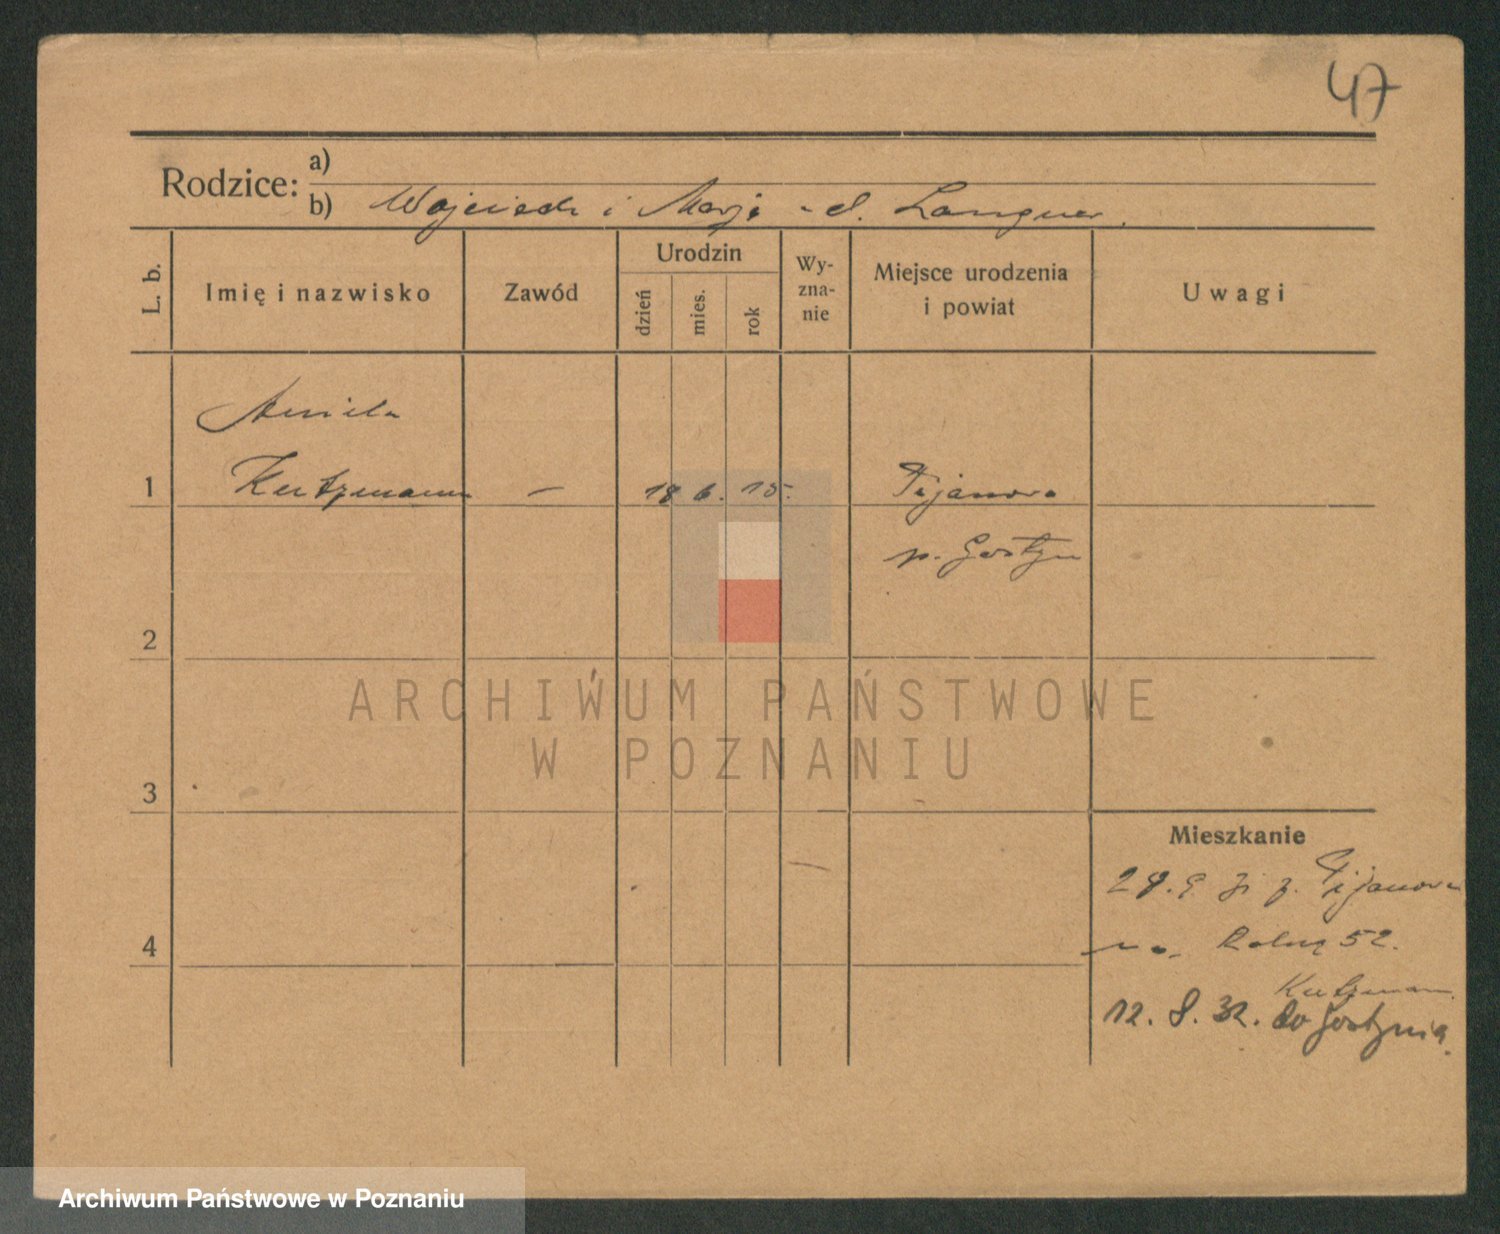 47
Rodzice: a)
b) Wojciech i Marja z d. Langner.
L. b.
Imię i nazwisko
Zawód
Urodzin
dzień
mies.
rok
Wy-
zna-
nie
Miejsce urodzenia
i powiat
Uwagi
Aniela
1 Kutzmann – 18 6. 15.
p. Gostyń
2
3
Mieszkanie
4
52.
Kutzmann
12. 8. 32. do Gostynia.
ARCHIWUM PAŃSTWOWE
W POZNANIU
Archiwum Państwowe w Poznaniu